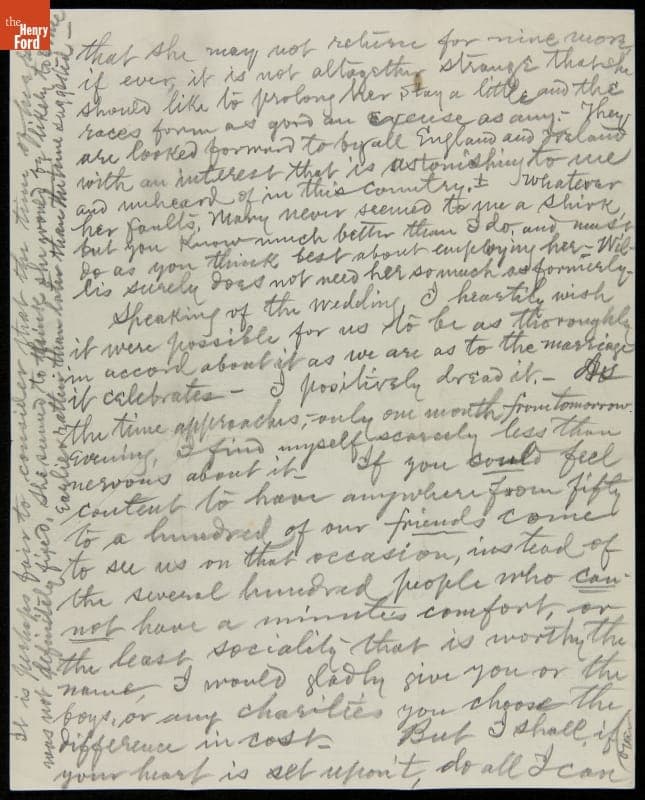 the
Henry
Ford
that she may not return for nine more,
if ever, it is not altogether strange that she
should like to prolong her stay a little and the
races form as good an excuse as any. — They
are looked forward to by all England and Ireland
with an interest that is astonishing to me
and unheard of in this country. ± Whatever
her faults, Mary never seemed to me a shirk,
but you know much better than I do, and must
do as you think best about employing her — Wil-
lis surely does not need her so much as formerly.
Speaking of the wedding, I heartily wish
it were possible for us to be as thoroughly
in accord about it as we are as to the marriage
it celebrates — I positively dread it. — As
the time approaches, — only one month from tomorrow
evening, I find myself scarcely less than
nervous about it — If you could feel
content to have anywhere from fifty
to a hundred of our friends come
to see us on that occasion, instead of
the several hundred people who can-
not have a minute's comfort, or
the least sociality that is worthy the
name, I would gladly give you or the
boys, or any charities you choose the
difference in cost — But I shall, if
your heart is set upon't, do all I can
(over
It is perhaps fair to consider that the time of his
was not definitely fixed, she seemed to think she would be likely to
Earlier rather than later than the time suggested —